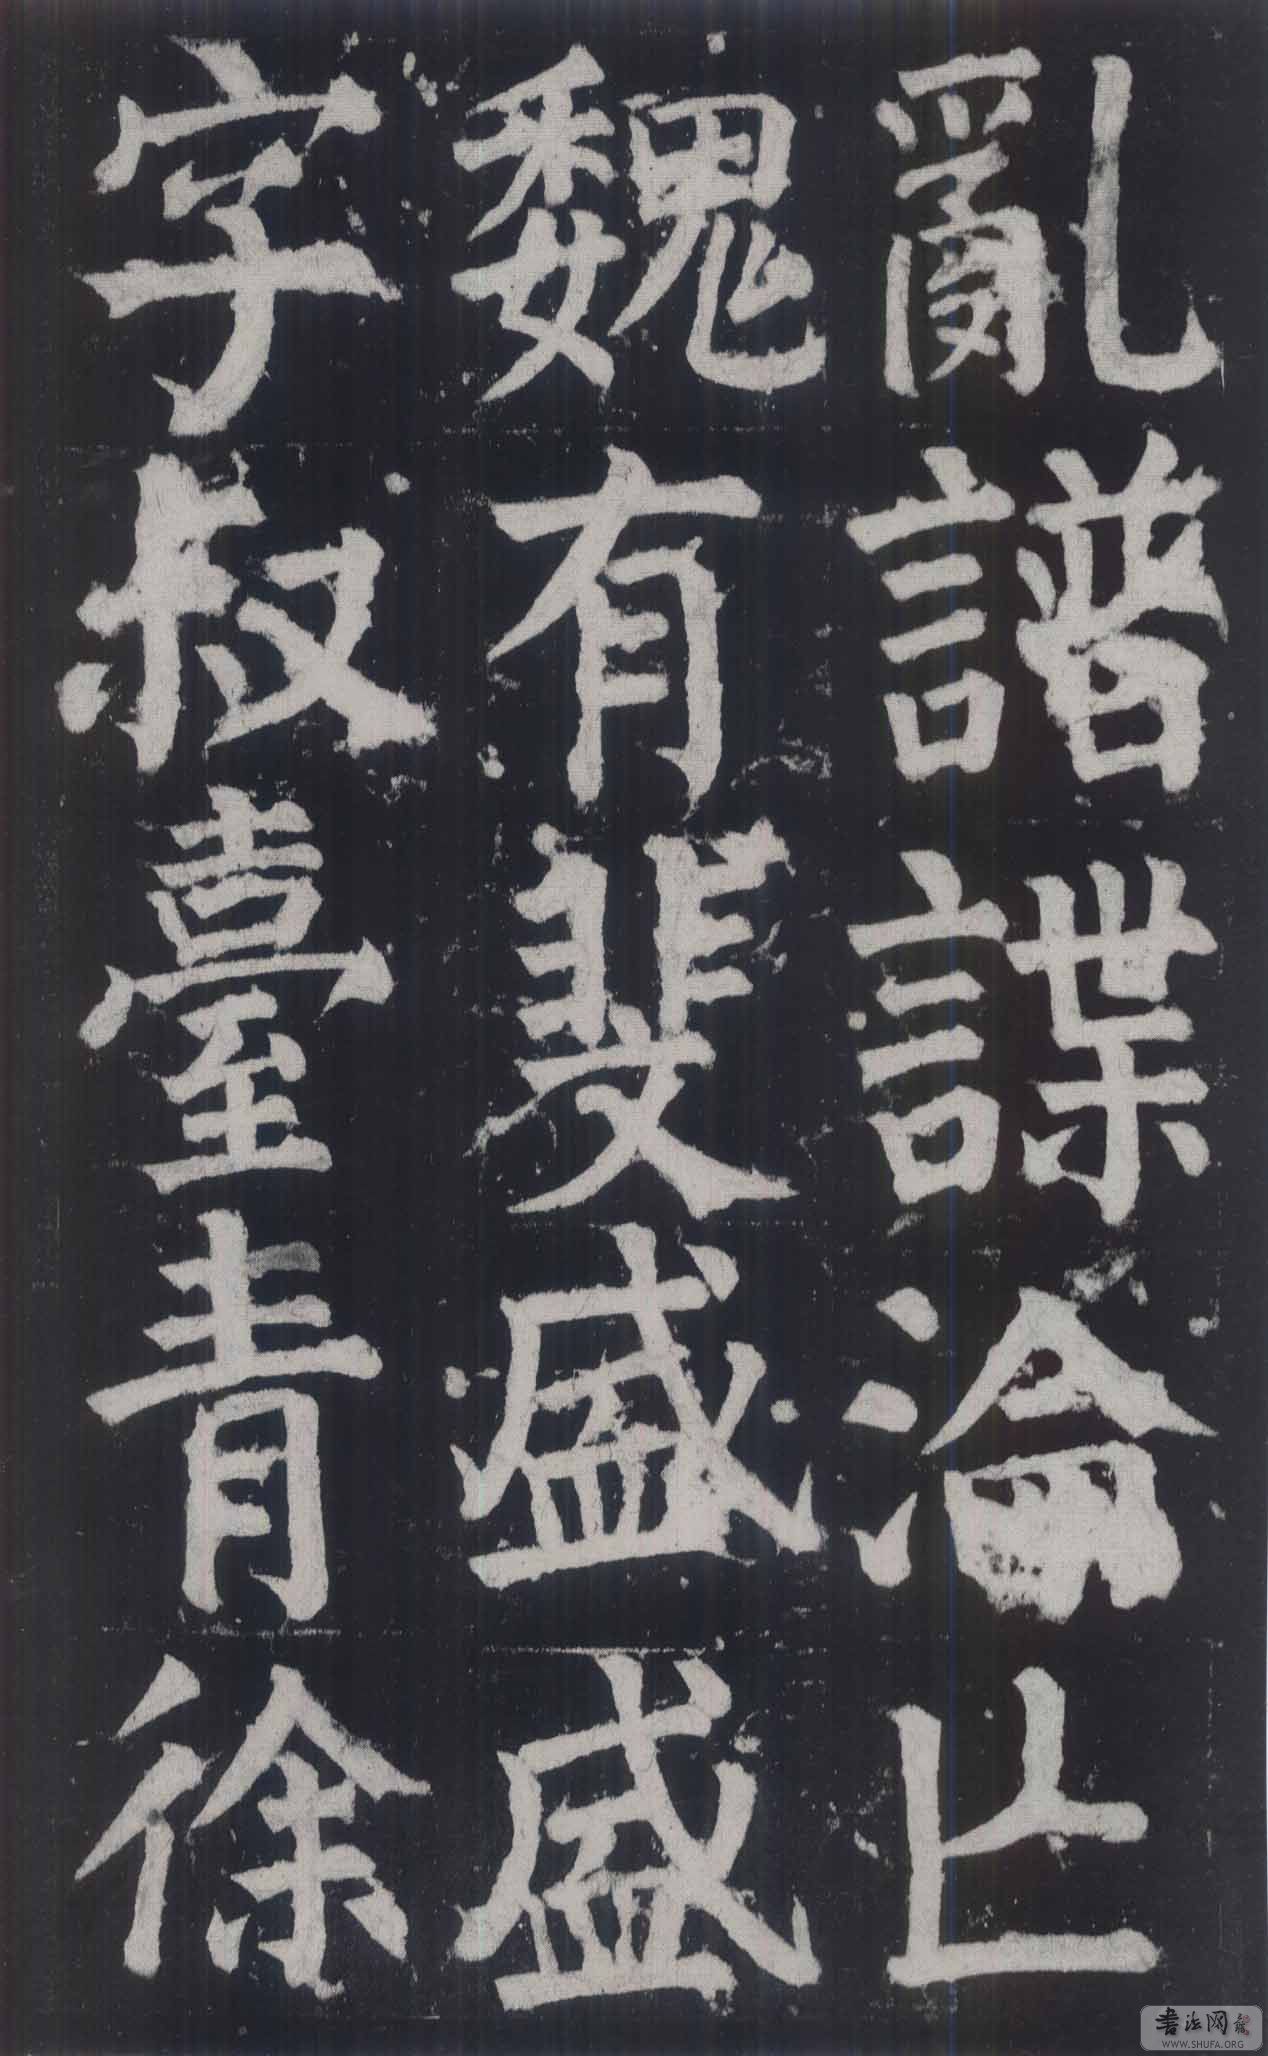 亂譜諜淪亡
魏有斐盛盛
字叔臺青徐
書法网
WWW.SHUFA.ORG